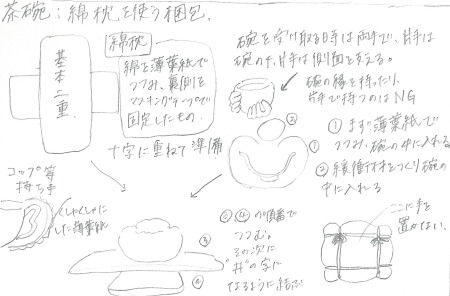 茶碗：綿枕を使う梱包.
基本二重.
綿枕
綿を薄葉紙で
つつみ、裏側を
マスキングテープで
固定したもの.
十字に重ねて準備
碗を受け取る時は両手で、片手は
碗の下、片手は側面を支える。
碗の縁を持ったり、
片手で持つのはNG
②
① まず薄葉紙で
つつみ、碗の中に入れる
② 緩衝材をつくり碗の
中に入れる
コップ等
持ち手
くしゃくしゃに
した薄葉紙
③
④
③④の順番で
つつむ。
その次に
"井"の字に
なるように結ぶ
ここに手を
置かない.